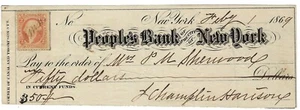 No. New York Feby 1 1869
Peoples Bank of the New York
Pay to the order of Mrs P M Sherwood
Fifty dollars Dollars
IN CURRENT FUNDS
$50.00 J Champlin Harrison